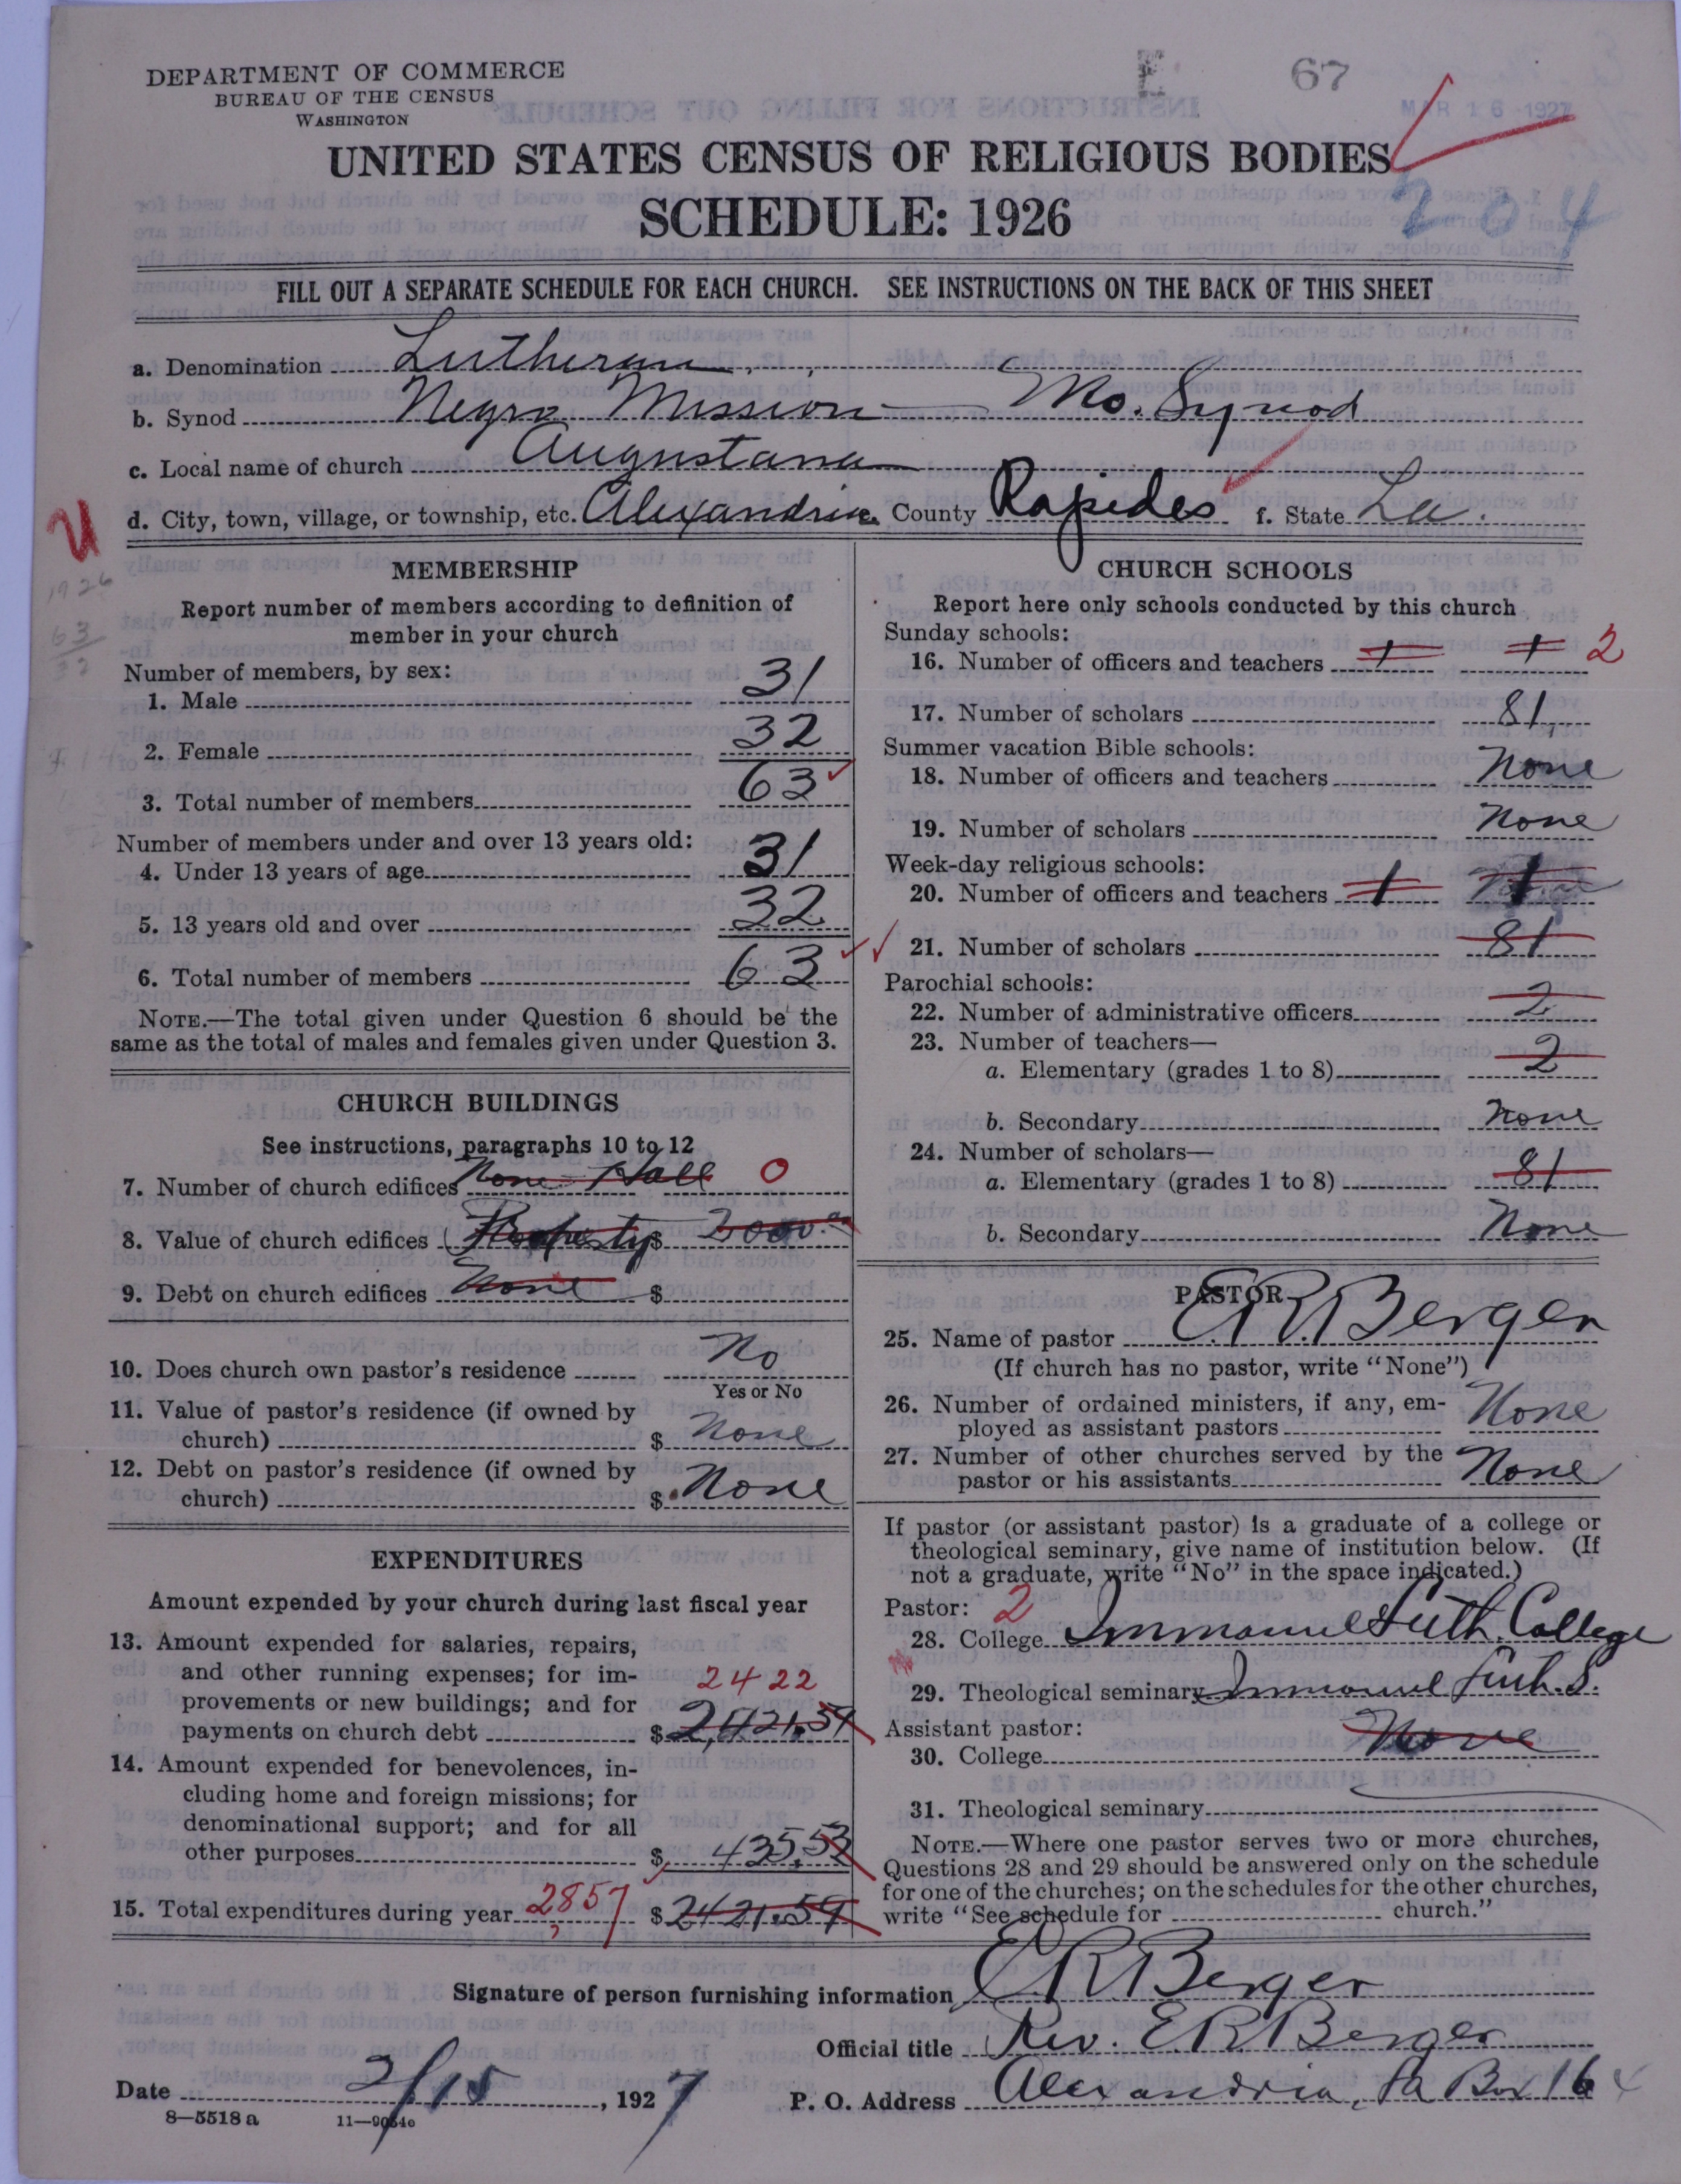 DEPARTMENT OF COMMERCE
BUREAU OF THE CENSUS
WASHINGTON
E 67
MAR 16 1927
UNITED STATES CENSUS OF RELIGIOUS BODIES
SCHEDULE: 1926
204
FILL OUT A SEPARATE SCHEDULE FOR EACH CHURCH. SEE INSTRUCTIONS ON THE BACK OF THIS SHEET
a. Denomination Lutheran
b. Synod Negro Mission Mo. Synod
c. Local name of church Augustana
d. City, town, village, or township, etc. Alexandria County Rapides f. State La.
U
1926
63
32
MEMBERSHIP
Report number of members according to definition of
member in your church
Number of members, by sex:
1. Male 31
2. Female 32
3. Total number of members 63
Number of members under and over 13 years old:
4. Under 13 years of age 31
5. 13 years old and over 32
6. Total number of members 63
NOTE.—The total given under Question 6 should be the
same as the total of males and females given under Question 3.
CHURCH BUILDINGS
See instructions, paragraphs 10 to 12
7. Number of church edifices None Hall 0
8. Value of church edifices (Property $ 2000.00
9. Debt on church edifices None $
10. Does church own pastor's residence No
Yes or No
11. Value of pastor's residence (if owned by
church) $ None
12. Debt on pastor's residence (if owned by
church) $ None
EXPENDITURES
Amount expended by your church during last fiscal year
13. Amount expended for salaries, repairs,
and other running expenses; for im-
provements or new buildings; and for
payments on church debt $ 2,421.59
2422
14. Amount expended for benevolences, in-
cluding home and foreign missions; for
denominational support; and for all
other purposes $ 435.53
15. Total expenditures during year 2857 $ 2421.59
CHURCH SCHOOLS
Report here only schools conducted by this church
Sunday schools:
16. Number of officers and teachers 1 1 2
17. Number of scholars 81
Summer vacation Bible schools:
18. Number of officers and teachers None
19. Number of scholars None
Week-day religious schools:
20. Number of officers and teachers 1 1
21. Number of scholars 81
Parochial schools:
22. Number of administrative officers 2
23. Number of teachers—
a. Elementary (grades 1 to 8) 2
b. Secondary None
24. Number of scholars—
a. Elementary (grades 1 to 8) 81
b. Secondary None
PASTOR
25. Name of pastor E R Berger
(If church has no pastor, write "None")
26. Number of ordained ministers, if any, em-
ployed as assistant pastors None
27. Number of other churches served by the
pastor or his assistants None
If pastor (or assistant pastor) is a graduate of a college or
theological seminary, give name of institution below. (If
not a graduate, write "No" in the space indicated.)
Pastor: 2
28. College Immanuel Luth. College
29. Theological seminary Immanuel Luth. S.
Assistant pastor:
30. College None
31. Theological seminary
NOTE.—Where one pastor serves two or more churches,
Questions 28 and 29 should be answered only on the schedule
for one of the churches; on the schedules for the other churches,
write "See schedule for church."
Signature of person furnishing information E R Berger
Official title Rev. E R Berger
Date 2/15, 1927 P. O. Address Alexandria, La Box 164
8—5518 a 11—9054c